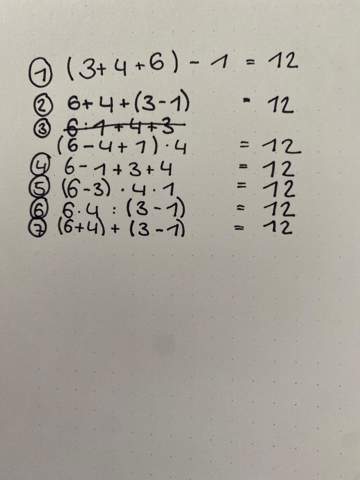 ① (3+4+6) - 1 = 12
② 6+4+(3-1) = 12
③ 6·1+4+3
(6-4+1)·4 = 12
④ 6-1+3+4 = 12
⑤ (6-3)·4·1 = 12
⑥ 6·4:(3-1) = 12
⑦ (6+4)+(3-1) = 12